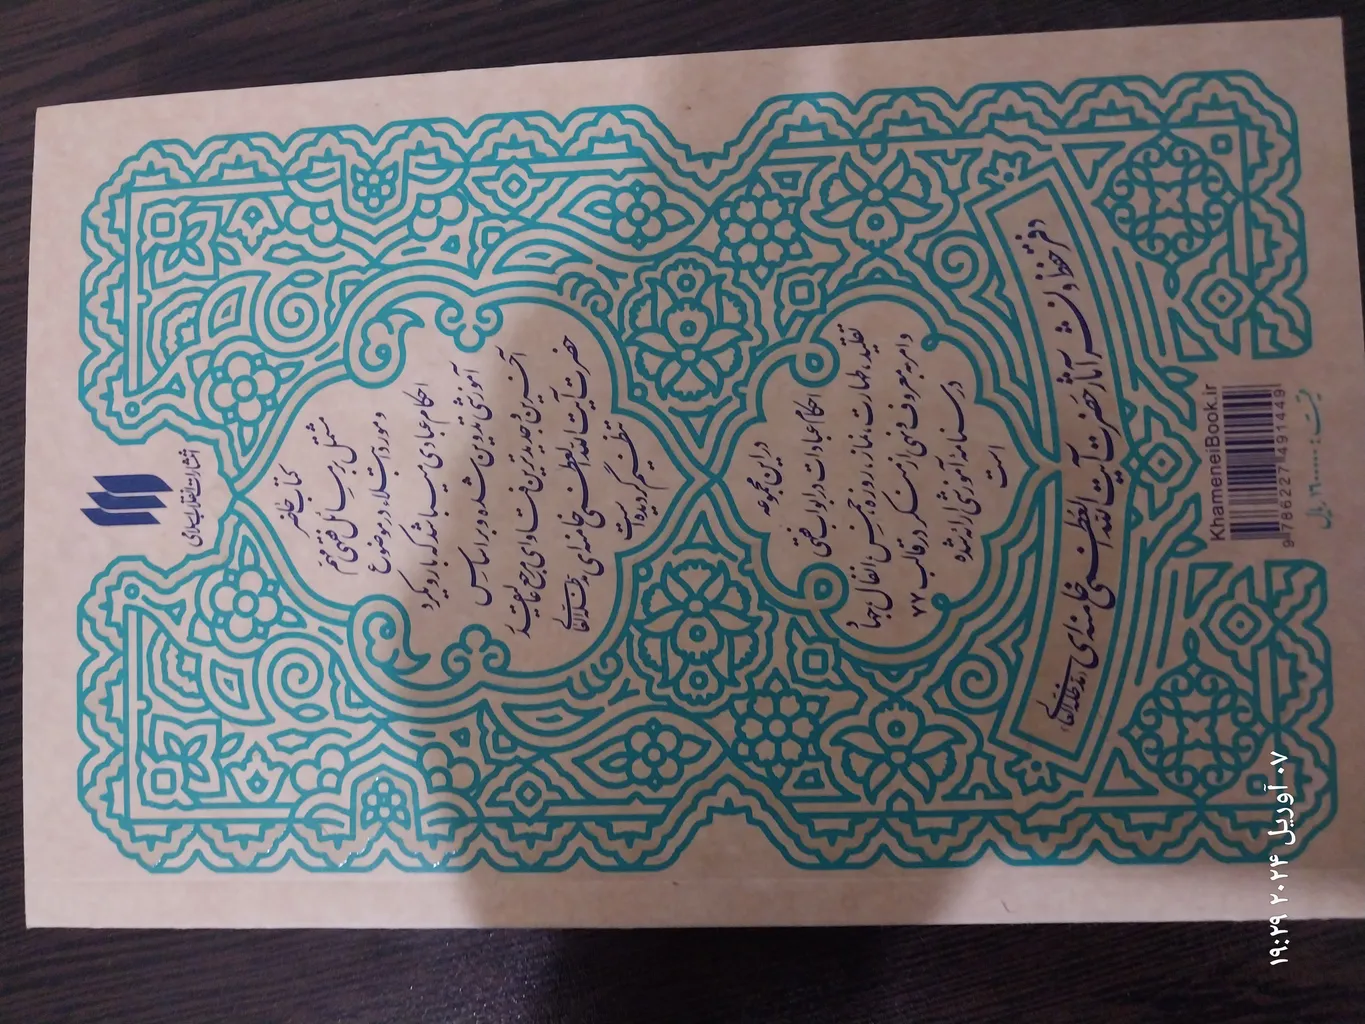 انتشارات انقلاب اسلامی
کتاب حاضر
مشتمل بر رسائل فقهی مهم
و مورد ابتلاء، در موضوع
احکام عبادی میباشد که با رویکرد
آموزشی تدوین شده و بر اساسِ
آخرین و جدیدترین فتاوای مرجع عالیقدر
حضرت آیت‌الله‌العظمی خامنه‌ای مدّظلّه‌العالی
تنظیم گردیده است
در این مجموعه
احکام عبادات در ابواب فقهی
تقلید، طهارت، نماز، روزه، خمس، انفال، جهاد
و امر به معروف و نهی از منکر در قالب ۷۷
درسنامه آموزشی ارائه شده
است
دفتر حفظ و نشر آثار حضرت آیت‌الله‌العظمی خامنه‌ای (مدّظلّه‌العالی)
KhameneiBook.ir
9786227491449
قیمت: ریال
۰۷ آوریل ۲۰۲۴ ۱۹:۲۹